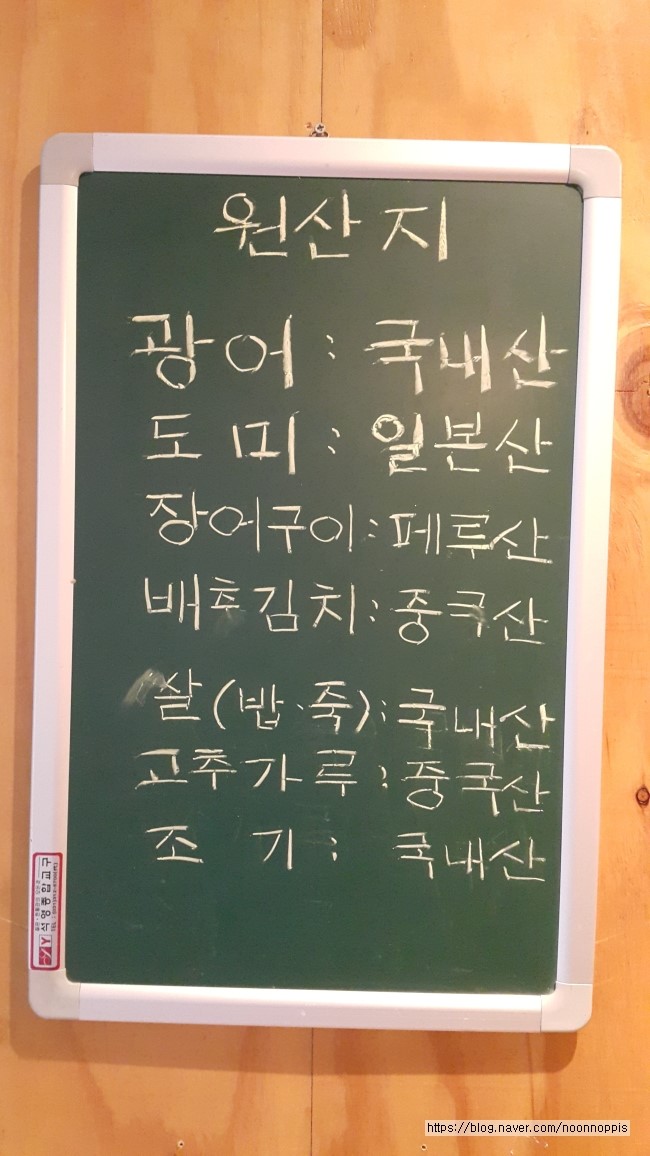 원산지
광어 : 국내산
도미 : 일본산
장어구이 : 페루산
배추김치 : 중국산
쌀(밥·죽) : 국내산
고추가루 : 중국산
조기 : 국내산
석영종합교구
https://blog.naver.com/noonnoppis